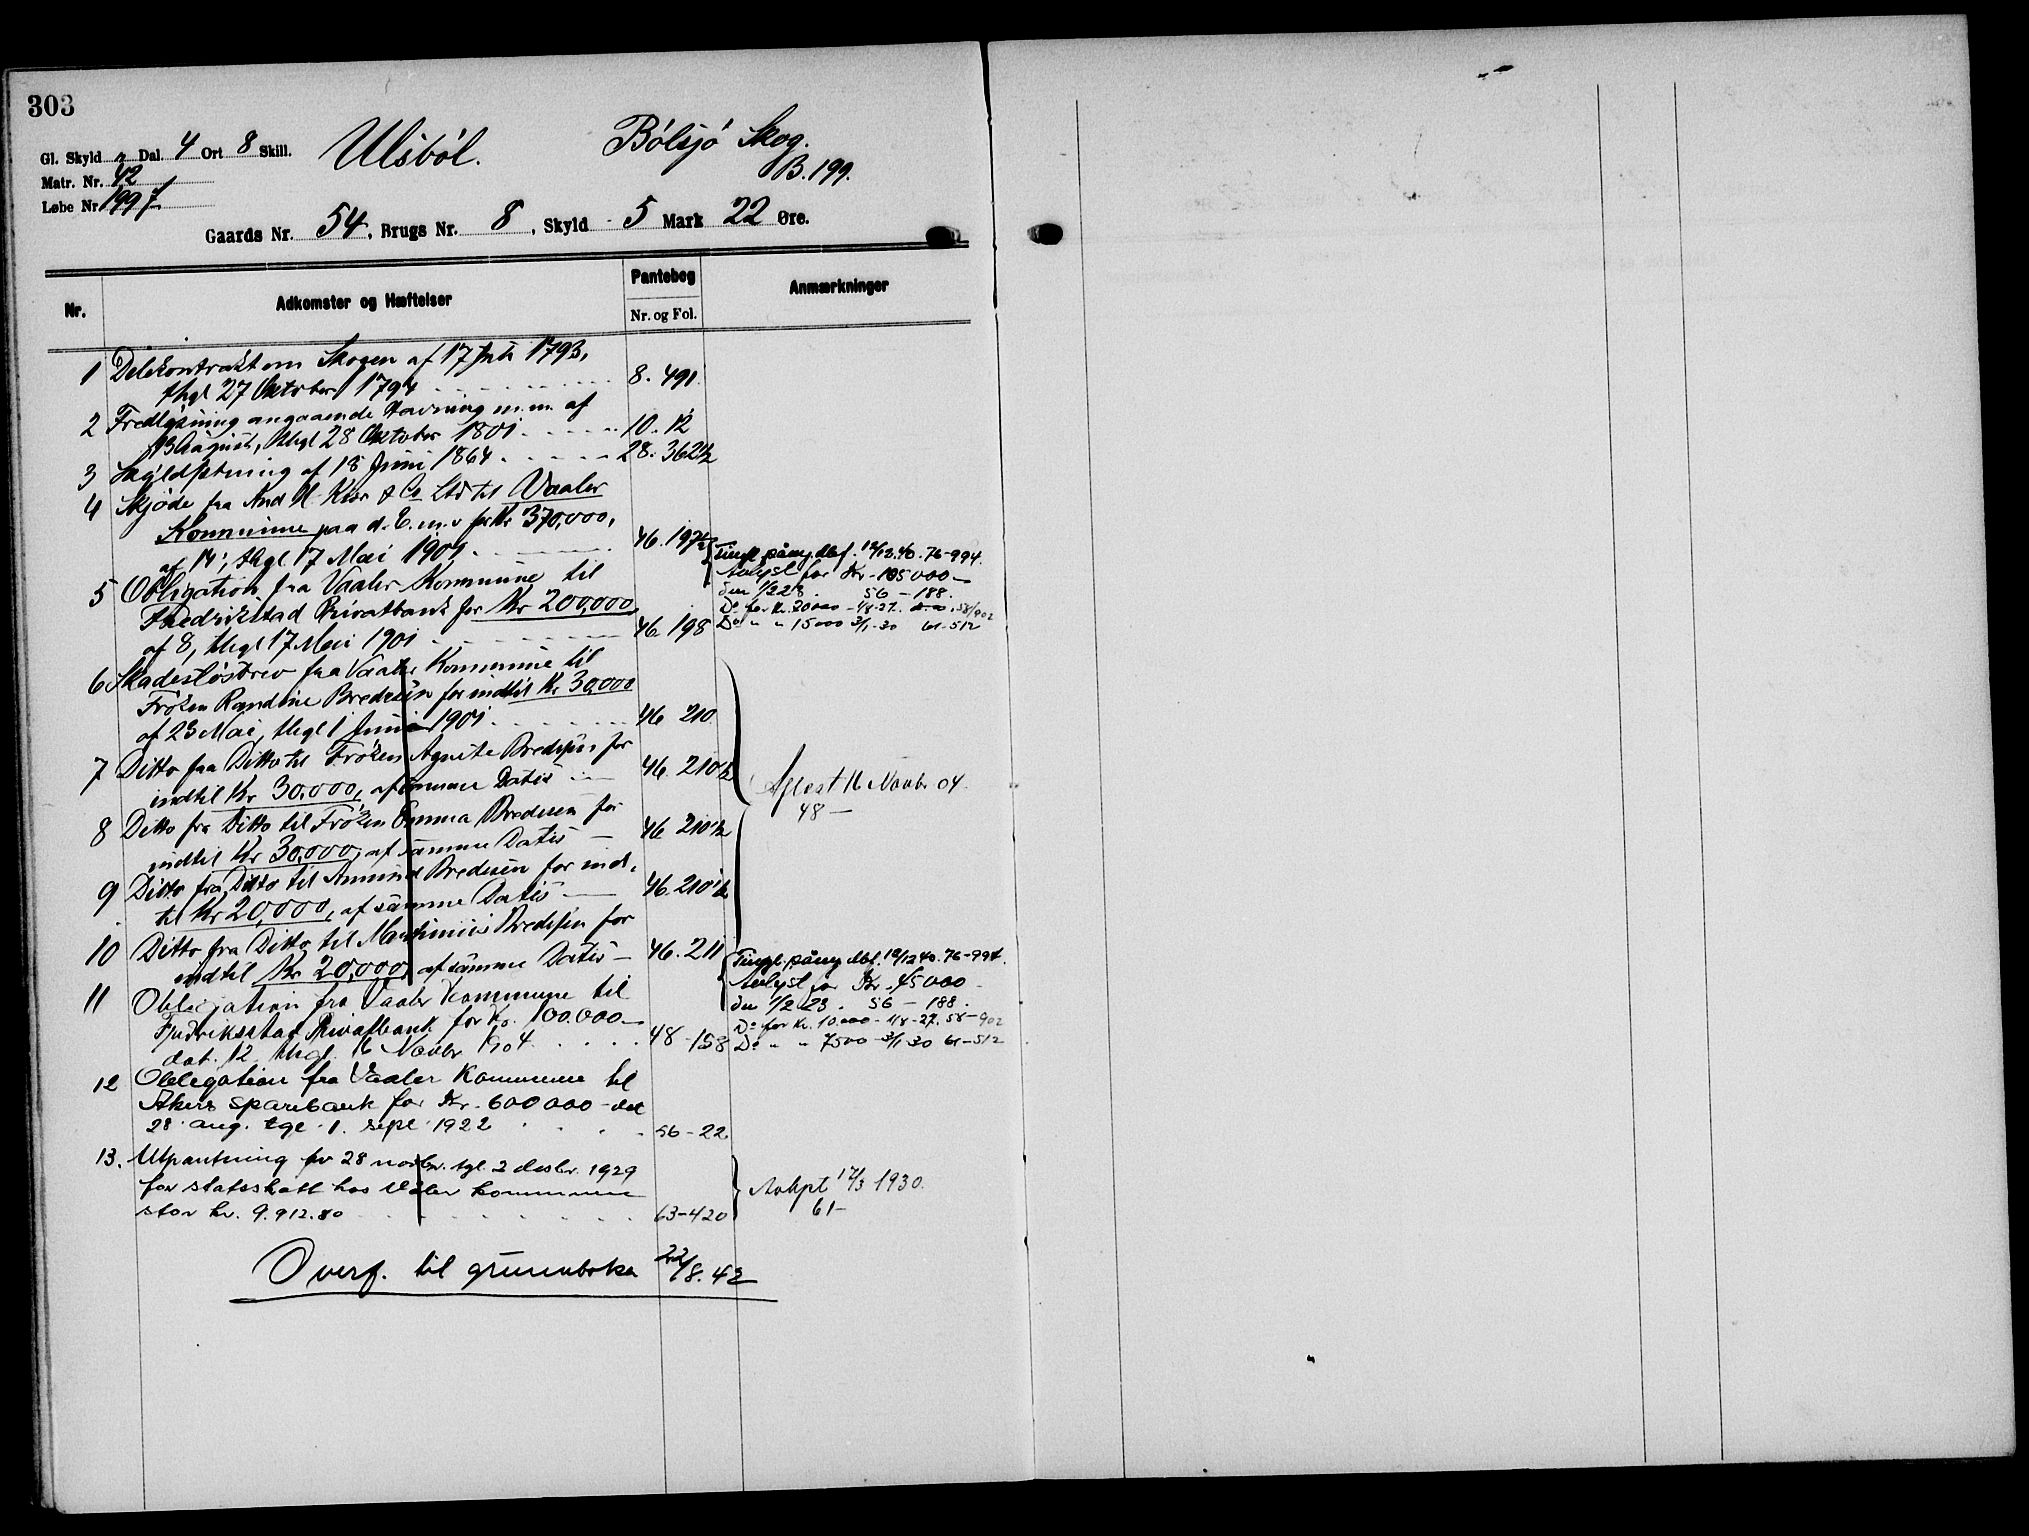 303
Gl. Skyld " Dal. 4 Ort 8 Skill.
Ulsböl.
Bölsjö Skog.
B. 199.
Matr. Nr. 42
Løbe Nr. 199 f
Gaards Nr. 54, Brugs Nr. 8, Skyld 5 Mark 22 Øre.
Nr.
Adkomster og Hæftelser
Pantebog
Nr. og Fol.
Anmærkninger
1 Delekontrakt om Skogen af 17 1793,
thgl 27 Oktober 1794 8. 491.
2 Fredlysning angaaende Havning m.m. af
13 August, thgl 28 Oktober 1801 10. 12
3 Skyldsetning af 18 Juni 1864 28. 362 1/2
4 Skjøde fra And H. Kiær & Co Ltd til Vaaler
Kommune paa d. E. m. v for Kr 370,000,
af 14, thgl 17 Mai 1901 46. 197 1/2
5 Obligation fra Vaaler Kommune til
Fredrikstad Privatbank for Kr 200,000
af 8, thgl 17 Mai 1901 46 198
Tingl. påny dbf. 19/12.40. 76-994.
Avlyst for Kr. 105000 —
den 1/2 23. 56 — 188.
Do for Kr. 20000 - 1/8-27. 58/902
Do " " 15000 3/1-30 61-512
6 Skadesløsbrev fra Vaaler Kommune til
Frøken Randine Bredesen for indtil Kr 30,000
af 23 Mai, thgl 1 Juni 1901 46 210
7 Ditto fra Ditto til Frøken Agnete Bredesen for
indtil Kr 30,000, af samme Datis 46. 210 1/2
8 Ditto fra Ditto til Frøken Emma Bredesen for
indtil Kr 30,000, af samme Datis — 46 210 1/2
9 Ditto fra Ditto til Amund Bredesen for ind-
til Kr 20,000, af samme Datis — 46. 210 1/2
10 Ditto fra Ditto til Bredesen for
indtil Kr 20,000 af samme Datis — 46. 211
Aflest 16 Novbr 04.
48 —
11 Obligation fra Vaaler Kommune til
Fredriksstad Privatbank for Kr. 100.000 —
dat. 12, thgl. 16 Novbr 1904 48 - 158
Tingl. påny dbf. 19/12 40. 76-994.
Avlyst for Kr. 45000 —
den 1/2 23. 56 — 188.
Do for Kr. 10.000 - 1/8-27. 58-902
Do " " 7500 - 3/1 30 61-512
12 Obligation fra Vaaler Kommune til
Akers sparebank for Kr. 600000 - dat
28 aug. tgl. 1. sept. 1922 56 - 22
13. Utpantning av 28 novbr. tgl. 2 desbr. 1929
for statsskatt hos Våler kommune
stor kr. 9.912.80 63-420
17/3 1930.
61 —
Overf. til grunnboka 22/8.42